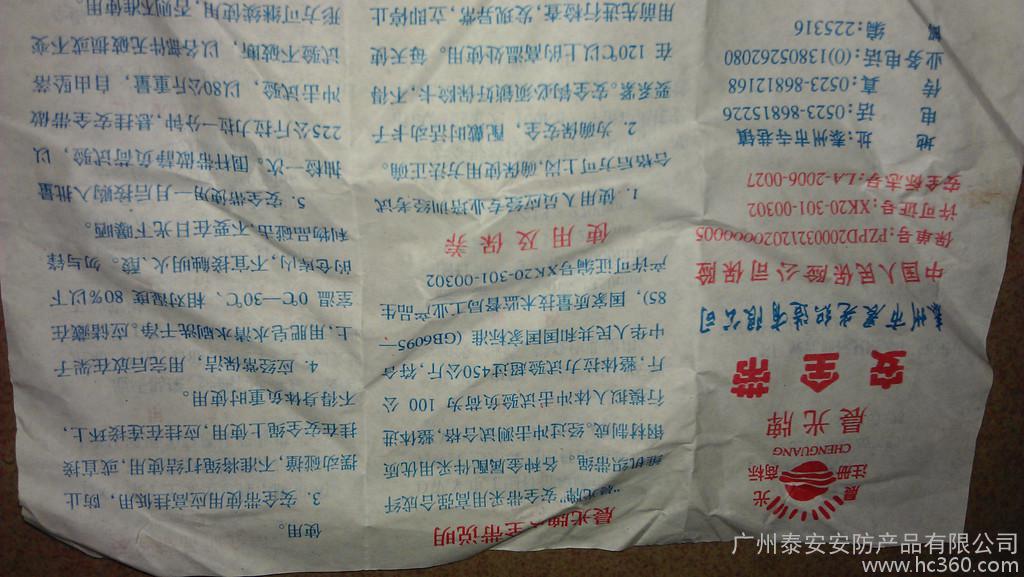 晨 光
注册
商标
CHENGUANG
晨光牌
安全带
泰州市晨光织造有限公司
中国人民保险公司保险
保单号:PZPD20003212020000005
许可证号:XK20-301-00302
安全标志号:LA-2006-0027
地 址:泰州市寺巷镇
电 话:0523-86815226
传 真:0523-86812168
业务电话:(0)13805262080
邮 编:225316
晨光牌安全带说明
“晨光牌”安全带采用高强合成纤
维机织带绳。各种金属配件采用优质
钢材制成。经过冲击测试合格,整体进
行模拟人体冲击试验负荷为 100 公
斤,整体拉力试验超过450公斤,符合
中华人民共和国国家标准(GB6095—
85),国家质量技术监督局工业产品生
产许可证编号XK20-301-00302
使用及保养
1、使用人员应经专业培训经考试
合格后方可上岗,确保使用方法正确。
2、为确保安全,配戴时活动卡子
要系紧。安全钩必须锁好保险卡,不得
在120℃以上的高温处使用。每天使
用前先进行检查,发现异常,立即停止
使用。
3、安全带使用应高挂低用,防止
摆动碰撞,不准将绳打结使用,或直接
挂在安全绳上使用,应挂在连接环上,
不得身体负重时使用。
4、应经常保洁,用完后放在架子
上,用肥皂水清水刷洗干净。应储藏在
室温 0℃—30℃、相对湿度 80%以下
的仓库内,不宜接触明火、酸。勿与锋
利物品碰击,不要在日光下曝晒。
5、安全带使用一月后按购入批量
抽检一次。围杆带做静负荷试验,以
225公斤拉力拉一分钟,悬挂安全带做
冲击试验,以80公斤重量,自由坠落
试验不断断,以各部件无破损或不变
形方可继续使用,否则不准使用。
广州泰安安防产品有限公司
www.hc360.com